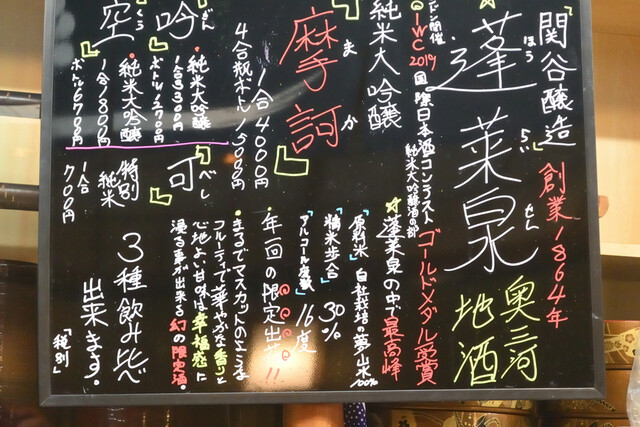 関谷醸造
創業1864年
蓬莱泉
ほう らい せん
奥三河
地酒
ドン開催
IWC2019
国際日本酒コンテスト
純米大吟醸酒の部
ゴールドメダル受賞
純米大吟醸
☆蓬莱泉の中で最高峰
摩訶
まか
原料米 自社栽培の夢山水100%
精米歩合 30%
アルコール度数 16度
1合4000円
・年一回の限定出荷!!
4合瓶ボトル15000円
・まるでマスカットのような
フルーティで華やかな香りと
心地よい甘味は幸福感に
浸る事が出来る幻の限定酒。
吟
ぎん
・純米大吟醸
1合3300円
ボトル12700円
空
くう
・純米大吟醸
1合1800円
ボトル6700円
可
べし
特別
純米
1合
700円
3種飲み比べ
出来ます。
「税別」